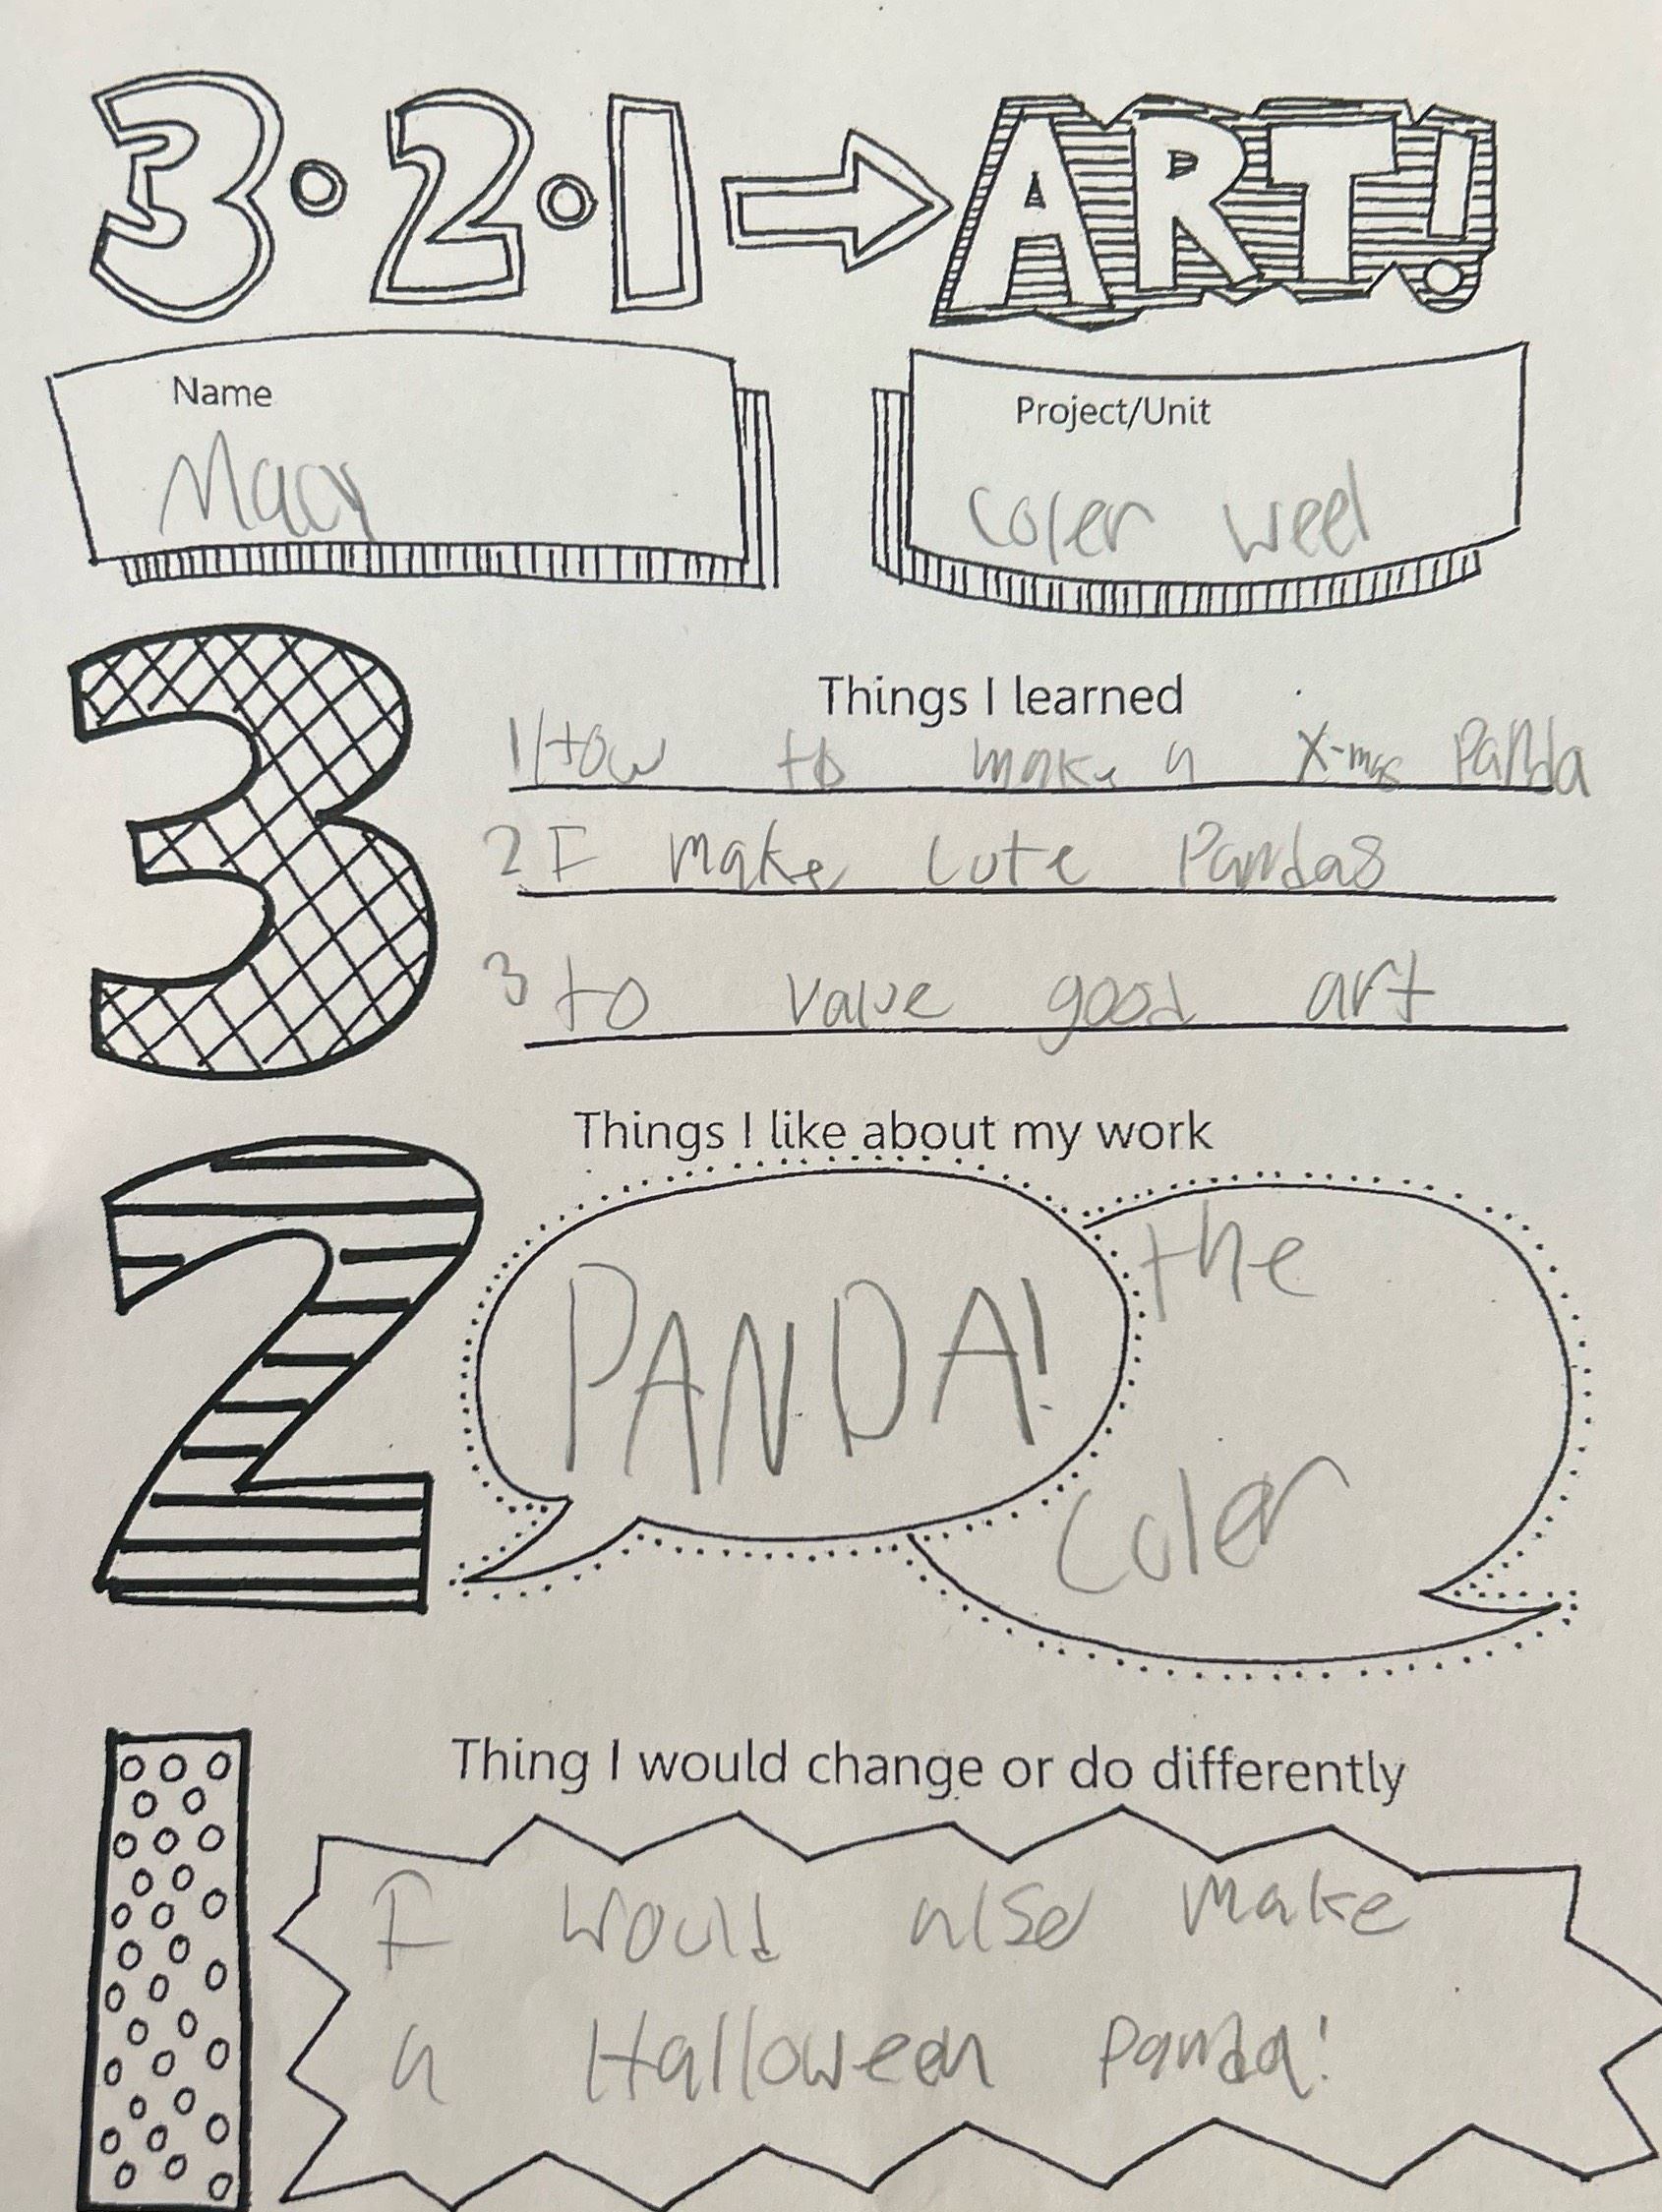 3·2·1→ART!
Name
Macy
Project/Unit
Coler weel
3
Things I learned
1 How to make a X-mas Panda
2 I make cute Pandas
3 to value good art
2
Things I like about my work
PANDA!
the
Coler
1
Thing I would change or do differently
I would also make
a Halloween Panda!